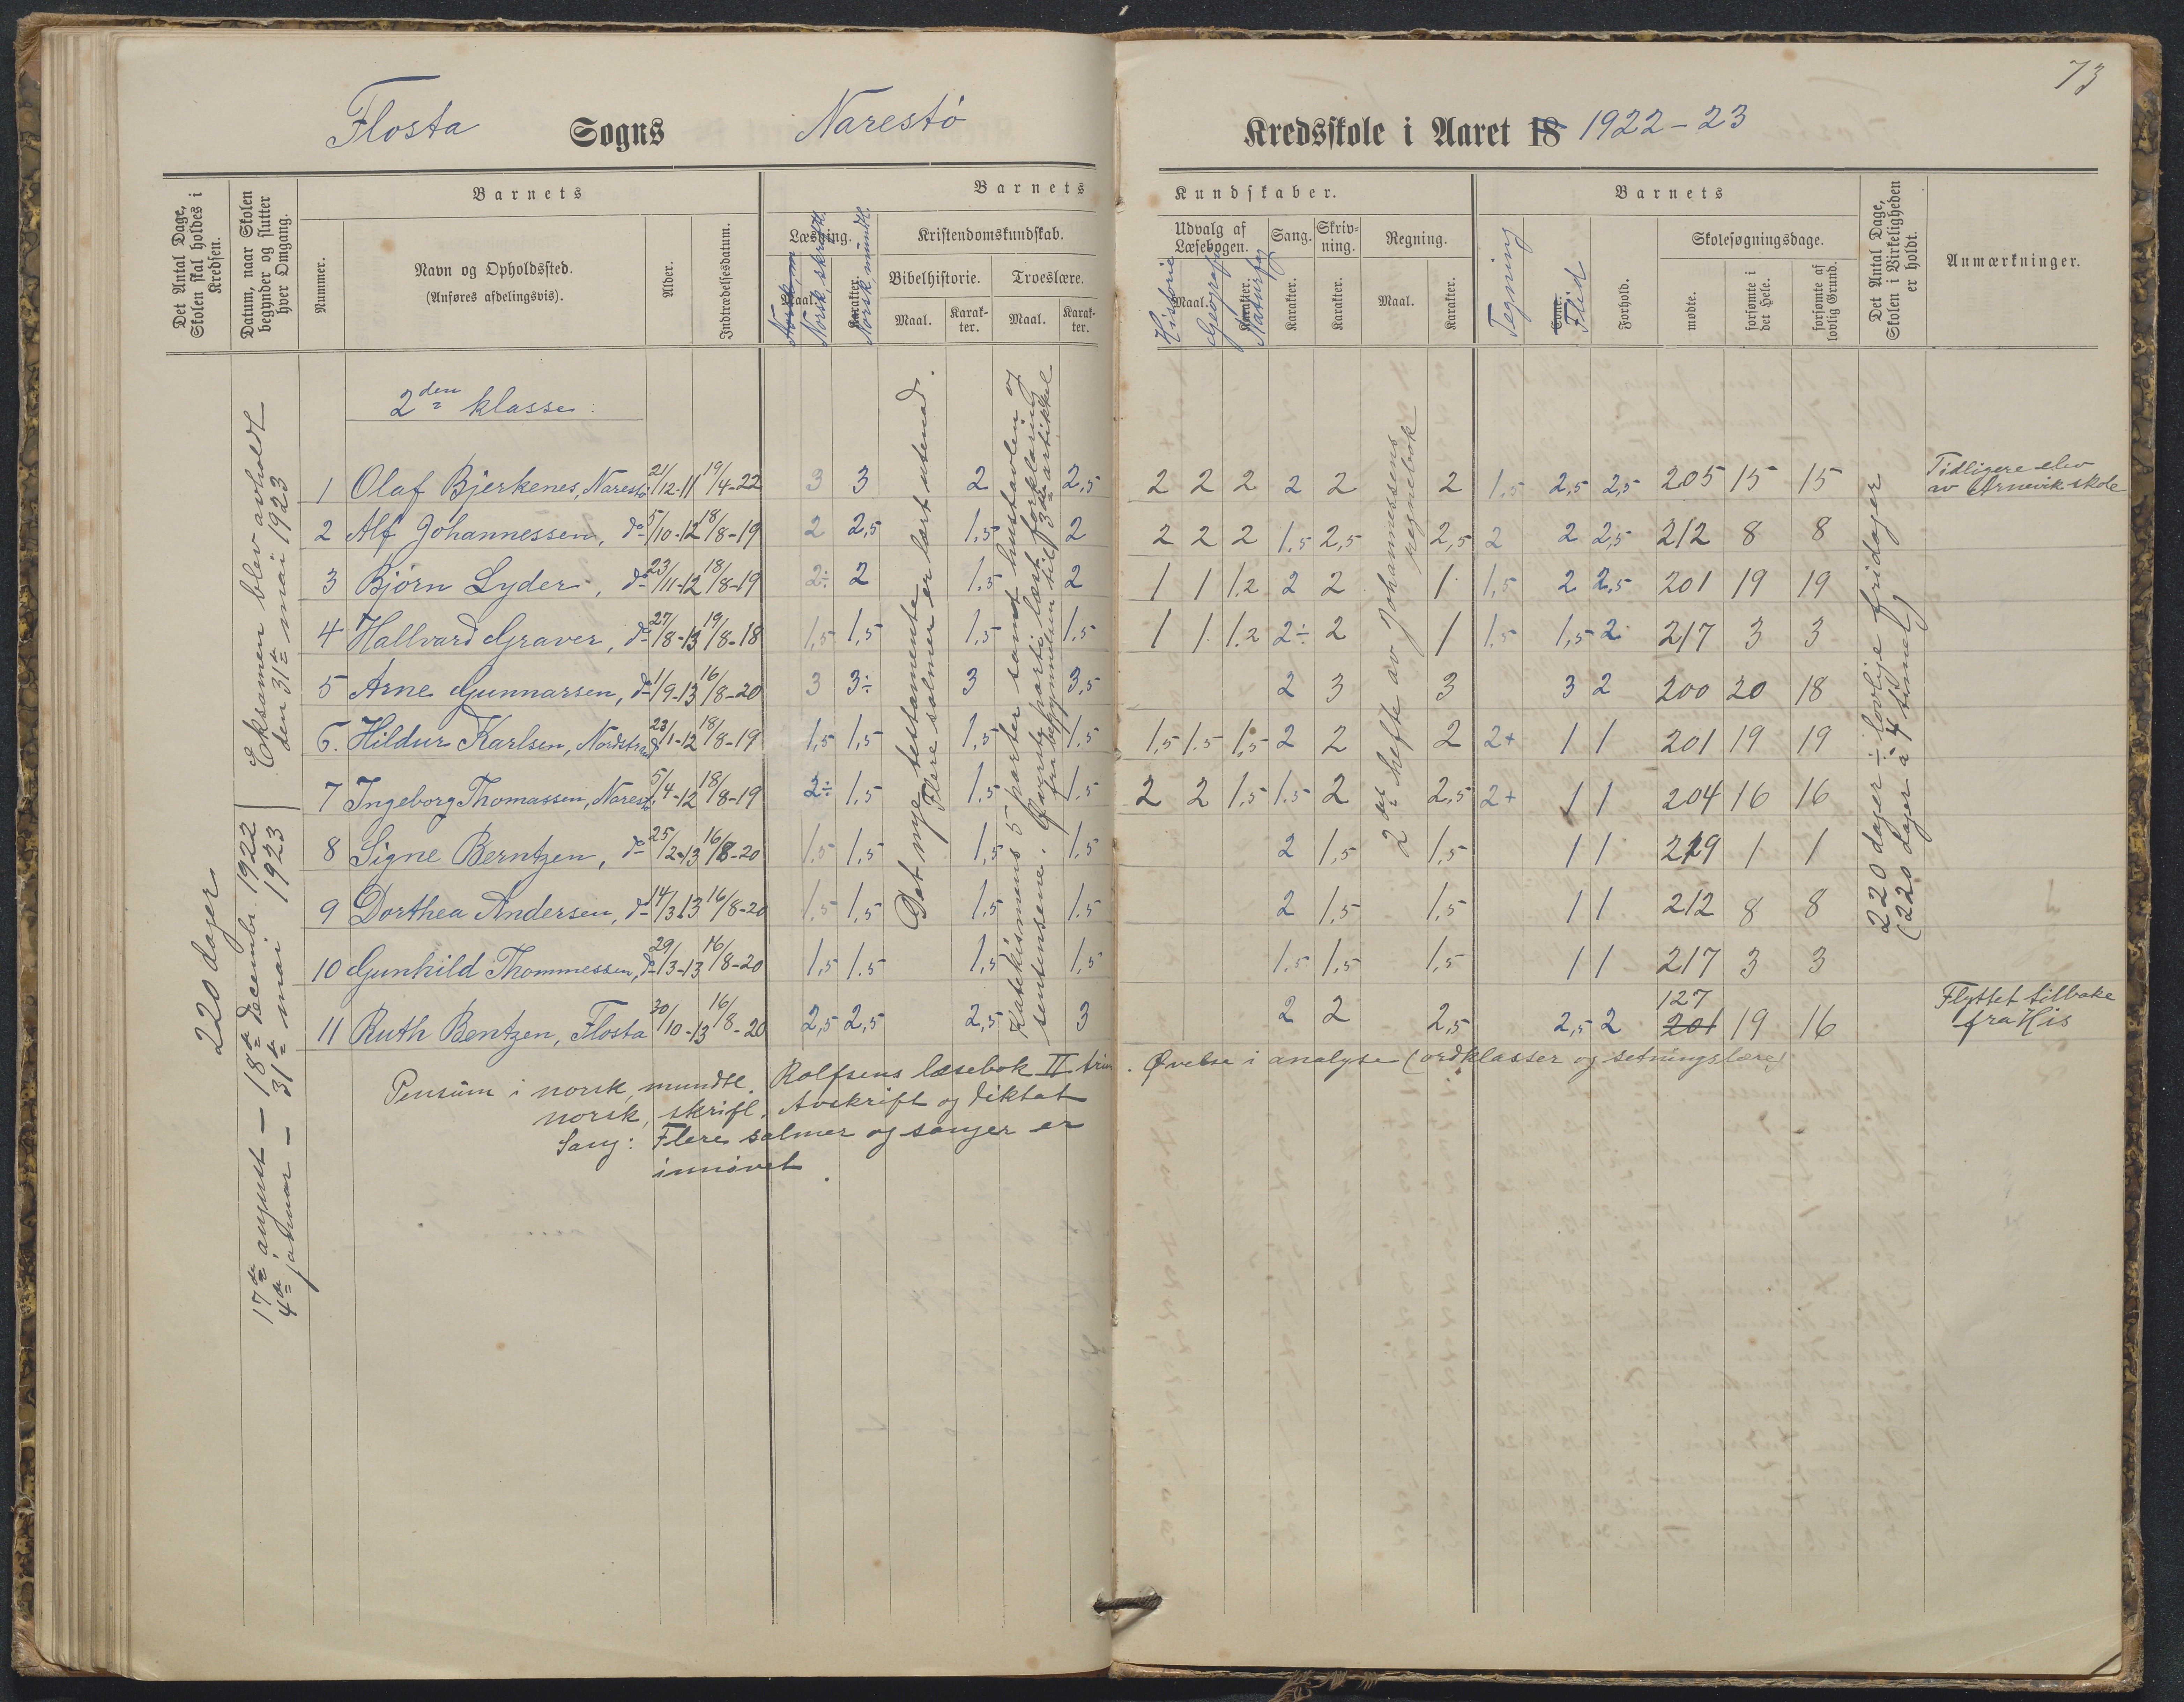 73
Flosta Sogns Narestö Kredsskole i Aaret 18 1922-23
Det Antal Dage, Skolen skal holdes i Kredsen.
Datum, naar Skolen begynder og slutter hver Omgang.
Nummer.
Barnets
Navn og Opholdssted.
(Anføres afdelingsvis).
Alder.
Indtrædelsesdatum.
Barnets Kundskaber.
Læsning.
Maal.
Norsk, skriftl.
Karakter.
Norsk, mundtl.
Kristendomskundskab.
Bibelhistorie. Troeslære.
Maal. Karakter. Maal. Karakter.
Udvalg af Læsebogen.
Maal. Karakter.
Historie
Geografi
Naturfag
Sang. Skrivning. Regning.
Karakter. Karakter. Maal. Karakter.
Barnets
Tegning
Evne.
Flid
Forhold.
Skolesøgningsdage.
mødte.
forsømte i det Hele.
forsømte af lovlig Grund.
Det Antal Dage, Skolen i Virkeligheden er holdt.
Anmærkninger.
220 dager
17de august – 18de decembr. 1922
4de januar – 31te mai 1923
Eksamen blev avholdt
den 31te mai 1923
2den klasse:
1 Olaf Bjerkenes, Narestö 21/12-11 19/4-22 3 3 2 2,5 2 2 2 2 2 2 1,5 2,5 2,5 205 15 15 Tidligere elev
av Arnevik skole
2 Alf Johannessen, do 5/10-12 18/8-19 2 2,5 1,5 2 2 2 2 1,5 2,5 2,5 2 2 2,5 212 8 8
3 Bjørn Lyder, do 23/11-12 18/8-19 2÷ 2 1,5 2 1 1 1.2 2 2 1 1,5 2 2,5 201 19 19
4 Hallvard Graver, do 27/8-13 19/8-18 1,5 1,5 1,5 1,5 1 1 1.2 2÷ 2 1 1,5 1,5 2 217 3 3
5 Arne Gunnarsen, do 1/9-13 16/8-20 3 3÷ 3 3,5 2 3 3 3 2 200 20 18
6. Hildur Karlsen, Nordstrand 23/1-12 18/8-19 1,5 1,5 1,5 1,5 1,5 1.5 1,5 2 2 2 2+ 1 1 201 19 19
7 Ingeborg Thomassen, Narest. 5/4-12 18/8-19 2÷ 1,5 1,5 1,5 2 2 1,5 1.5 2 2,5 2+ 1 1 204 16 16
8 Signe Berntzen, do 25/2-13 16/8-20 1,5 1,5 1,5 1,5 2 1,5 1,5 1 1 219 1 1
9 Dorthea Andersen, do 14/3.13 16/8-20 1,5 1,5 1,5 1.5 2 1,5 1,5 1 1 212 8 8
10 Gunhild Thommessen, do 29/3-13 16/8-20 1,5 1.5 1,5 1,5 1.5 1,5 1,5 1 1 217 3 3
11 Ruth Bentzen, Flosta 30/10-13 16/8-20 2,5 2,5 2,5 3 2 2 2,5 2,5 2 127 201 19 16 Flyttet tilbake
fra His
Det nye testamente
Flere salmer er lært utenad.
Katekismens 5 parter samt hustavlen og
sentensene. Øvognts parti læst forklaring
fra begynnelsen til 3die artikkel
2det hefte av Johannessens
regnebok
220 dager ÷ lovlige fridager
(220 dager à 4 timer)
Pensum i norsk, mundtl. Rolfsens læsebok II trin. Øvelse i analyse (ordklasser og setningslære)
norsk, skriftl. Avskrift og diktat
Sang: Flere salmer og sanger er
innøvet.